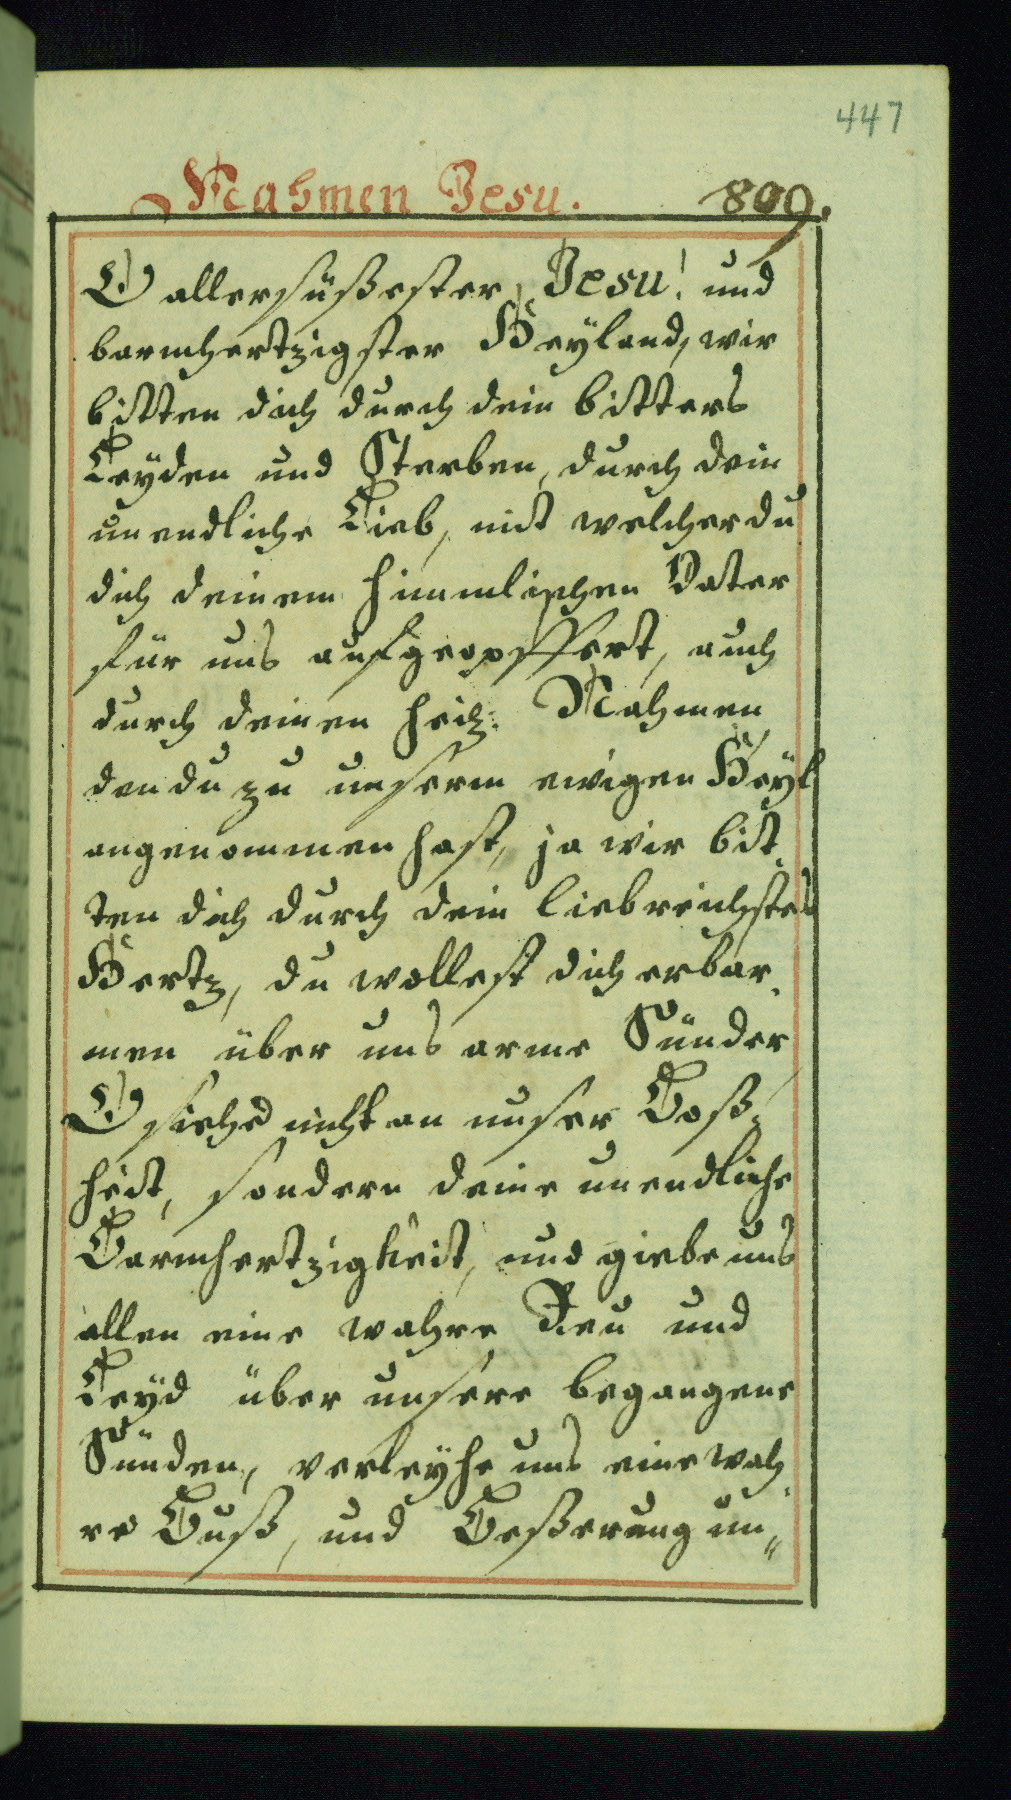 447
Nahmen Jesu. 809.
O allersüßester Jesu! und
barmhertzigster Heyland, wir
bitten dich durch dein bitters
Leyden und Sterben, durch dein
unendliche Lieb, mit welcher du
dich deinem himmlischen Vater
für uns aufgeopffert, auch
durch deinen heil. Nahmen
den du zu unserm ewigen Heyl
angenommen hast, ja wir bit-
ten dich durch dein liebreichstes
Hertz, du wollest dich erbar-
men über uns arme Sünder
O siehe nicht an unser Boß-
heit, sondern deine unendliche
Barmhertzigkeit, und giebe uns
allen eine wahre Reu und
Leyd über unsere begangene
Sünden, verleyhe uns eine wah-
re Buß, und Beßerung un„